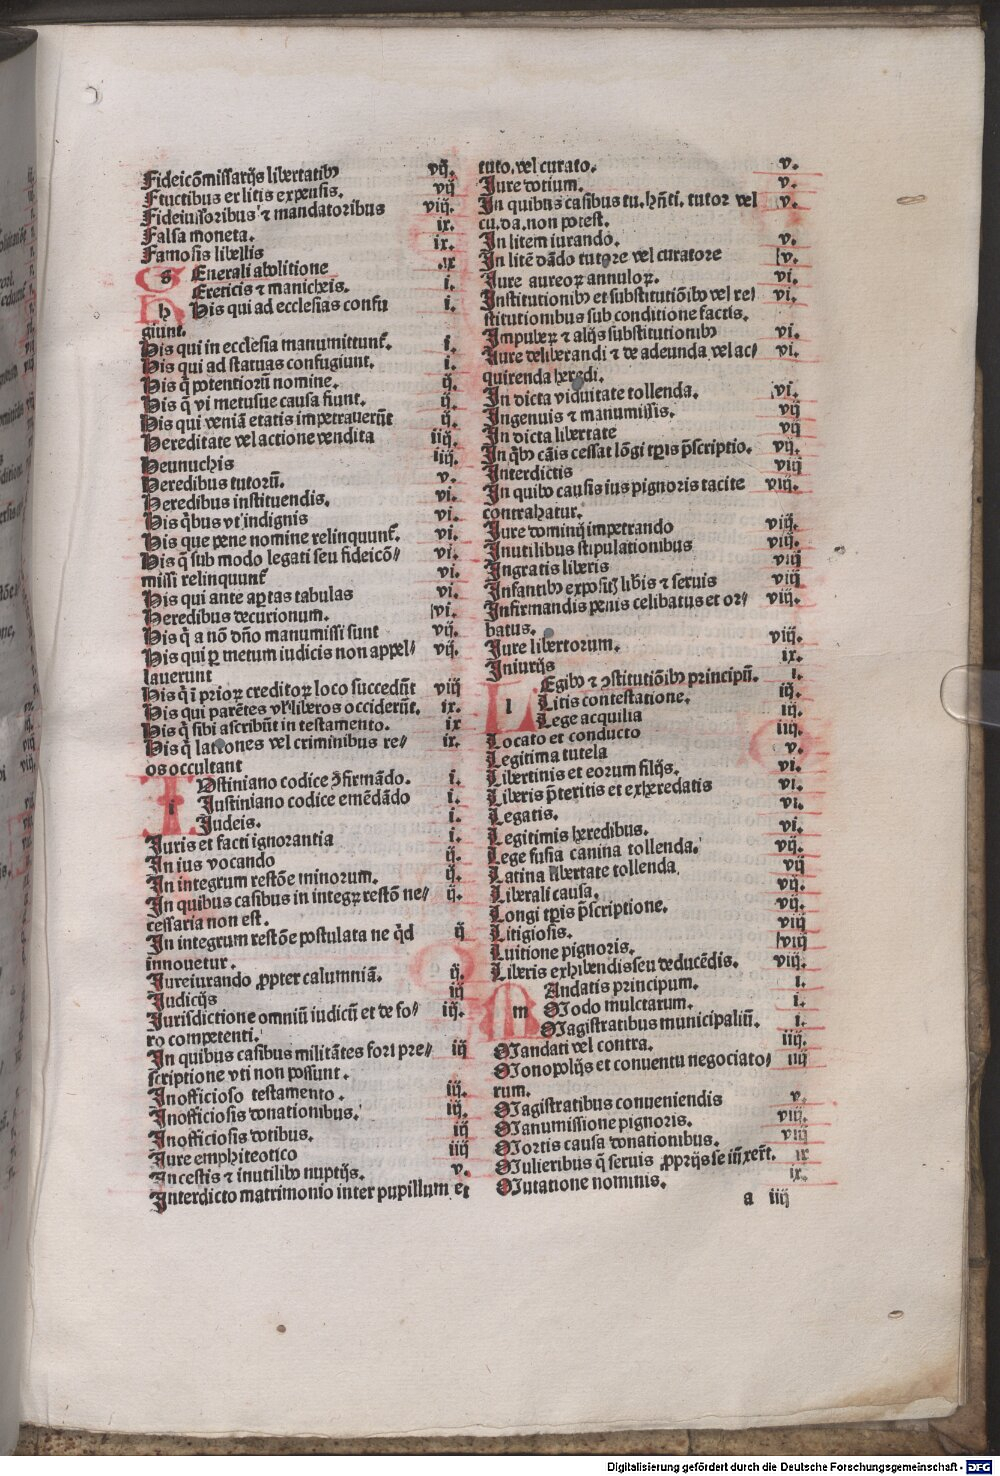 Fideicōmissarijs libertatibꝰ vij.
Fructibus et litis expensis. vij
Fideiussoribus ⁊ mandatoribus viij.
Falsa moneta. ix.
Famosis libellis ix.
g Enerali abolitione .ix
Ereticis ⁊ manicheis. i.
h His qui ad ecclesias confu i.
giunt.
His qui in ecclesia manumittunt̄. i.
His qui ad statuas confugiunt. i.
His q̄ potentiorū nomine. ij.
His q̄ vi metusue causa fiunt. ij.
His qui veniā etatis impetrauerūt ij.
Hereditate vel actione vendita iiij.
Heunuchis iiij.
Heredibus tutorū. v.
Heredibus instituendis. vi.
His q̄bus vt indignis vi.
His que pene nomine relinquunt̄. vi.
His q̄ sub modo legati seu fideicō⸗ vi.
missi relinquunt̄
His qui ante aꝑtas tabulas vi.
Heredibus decurionum. vi.
His q̄ a nō dño manumissi sunt vij.
His qui ꝑ metum iudicis non appel⸗ vij.
lauerunt
His q̄ ī prioꝝ creditoꝝ loco succedūt viij
His qui parētes vl' liberos occiderūt. ix.
His q̄ sibi ascribūt in testamento. ix
His q̄ latrones vel criminibus re⸗ ix.
os occultant
i Ustiniano codice ꝯfirmādo. i.
Justiniano codice emēdādo i.
Judeis. i.
Juris et facti ignorantia i.
In ius vocando ij.
In integrum restōe minorum. ij.
In quibus casibus in integꝝ restō ne⸗ ij.
cessaria non est.
In integrum restōe postulata ne q̄d ij
innouetur.
Jureiurando ꝓpter calumniā. ij.
Judicijs iij
Jurisdictione omniū iudicū et de fo⸗ iij.
ro competenti.
In quibus casibus militātes fori pre⸗ iij
scriptione vti non possunt.
Inofficioso testamento. iij.
Inofficiosis donationibus. iij.
Inofficiosis dotibus. iij
Jure emphiteotico iiij
Incestis ⁊ inutilibꝰ nuptijs. v.
Interdicto matrimonio inter pupillum et
tuto. vel curato. v.
Jure dotium. v.
In quibus casibus tu. hn̄ti. tutor vel v.
cu. da. non potest.
In litem iurando. v.
In litē dādo tutore vel curatore v.
Jure aureoꝝ annuloꝝ. vi.
Institutionibꝰ et substitutōibꝰ vel re⸗ vi.
stitutionibus sub conditione factis.
Impubeꝝ ⁊ alijs substitutionibꝰ vi.
Jure deliberandi ⁊ de adeunda vel ac⸗ vi.
quirenda heredi.
In dicta viduitate tollenda. vi.
Ingenuis ⁊ manumissis. vij
In dicta libertate vij
In q̄bꝰ cāis cessat lōgi tꝑis p̄scriptio. vij.
Interdictis viij
In quibꝰ causis ius pignoris tacite viij.
contrahatur.
Jure dominij impetrando viij.
Inutilibus stipulationibus viij.
Ingratis liberis viij
Infantibꝰ expositꝭ lib̄is ⁊ seruis viij
Infirmandis penis celibatus et or⸗ viij.
batus.
Jure libertorum. viij.
Iniurijs ix.
l Egibꝰ ⁊ ꝯstitutōibꝰ principū. i.
Litis contestatione. iij.
Lege acquilia iij.
Locato et conducto iiij.
Legitima tutela v.
Libertinis et eorum filijs. vi.
Liberis p̄teritis et exheredatis vi.
Legatis. vi.
Legitimis heredibus. vi.
Lege fusia canina tollenda. vij.
Latina libertate tollenda vij
Liberali causa. vij.
Longi tꝑis p̄scriptione. vij.
Litigiosis. viij
Luitione pignoris. viij
Liberis exhibendis seu deducēdis. viij.
m Andatis principum. i.
Modo mulctarum. i.
Magistratibus municipaliū. i.
Mandati vel contra. iiij.
Monopolijs et conuentu negociato⸗ iiij
rum.
Magistratibus conueniendis v.
Manumissione pignoris. viij.
Mortis causa donationibus. viij
Mulieribus q̄ seruis ꝓprijs se iūxer̄t. ix
Mutatione nominis. ix.
a iiij
Digitalisierung gefördert durch die Deutsche Forschungsgemeinschaft - DFG